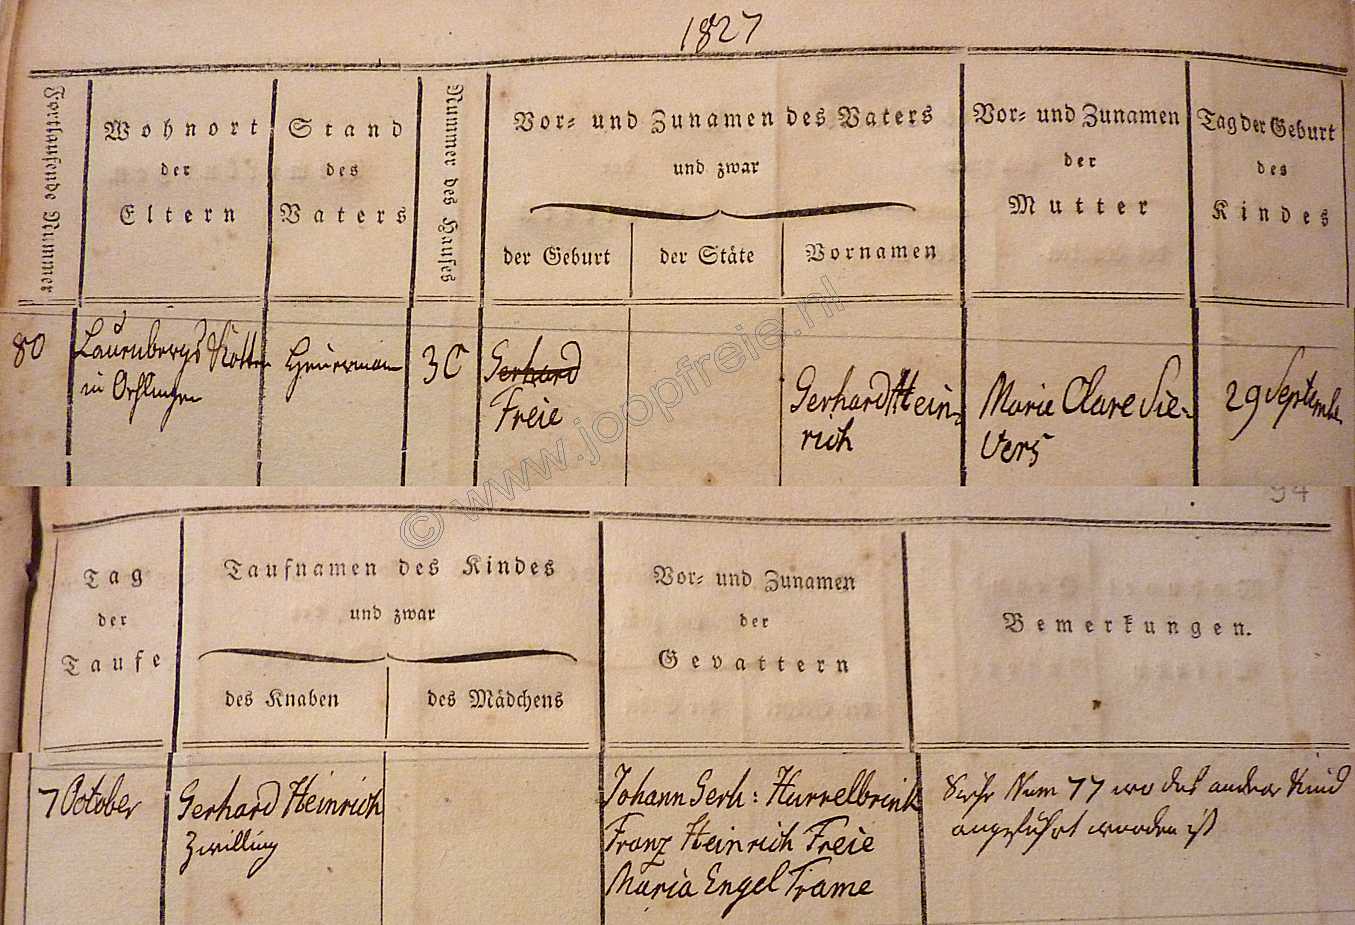 1827
Fortlaufende Nummer
Wohnort
der
Eltern
Stand
des
Vaters
Nummer des Hauses
Vor- und Zunamen des Vaters
und zwar
der Geburt
der Stäte
Vornamen
Vor- und Zunamen
der
Mutter
Tag der Geburt
des
Kindes
80
Laurnbergs Kotten
in Oehlingen
Heuermann
3C
Gerhard
Freie
Gerhard Hein-
rich
Marie Clare Sie-
vers
29 September
© www.joopfreie.nl
94
Tag
der
Taufe
Taufnamen des Kindes
und zwar
des Knaben
des Mädchens
Vor- und Zunamen
der
Gevattern
Bemerkungen.
7 October
Gerhard Heinrich
Zwilling
Johann Gerh: Hurrelbrink
Franz Heinrich Freie
Maria Engel Trame
Siehe Num 77 wo das andere Kind
angeführt worden ist